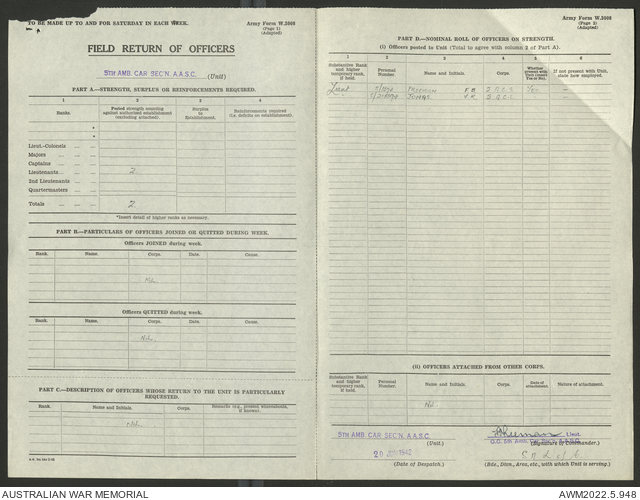 TO BE MADE UP TO AND FOR SATURDAY IN EACH WEEK.
Army Form W.3008
(Page 1)
(Adapted)
FIELD RETURN OF OFFICERS
5TH AMB. CAR SEC'N. A.A.S.C. (Unit)
PART A.—STRENGTH, SURPLUS OR REINFORCEMENTS REQUIRED.
1 2 3 4
Ranks. Posted strength counting against authorized establishment (excluding attached). Surplus to Establishment. Reinforcements required (i.e. deficits on establishment).
*
*
Lieut.-Colonels
Majors
Captains
Lieutenants 2
2nd Lieutenants
Quartermasters
Totals 2
*Insert detail of higher ranks as necessary.
PART B.—PARTICULARS OF OFFICERS JOINED OR QUITTED DURING WEEK.
Officers JOINED during week.
Rank. Name. Corps. Date. Cause.
Nil
Officers QUITTED during week.
Rank. Name. Corps. Date. Cause.
Nil
PART C.—DESCRIPTION OF OFFICERS WHOSE RETURN TO THE UNIT IS PARTICULARLY
REQUESTED.
Rank. Name and Initials. Corps. Remarks (e.g., present whereabouts, if known).
Nil
Army Form W.3008
(Page 2)
(Adapted)
PART D.—NOMINAL ROLL OF OFFICERS ON STRENGTH.
(i) Officers posted to Unit (Total to agree with column 2 of Part A).
1 2 3 4 5 6
Substantive Rank and higher temporary rank, if held. Personal Number. Name and Initials. Corps. Whether present with Unit (insert Yes or No). If not present with Unit, state how employed.
Lieut Freeman Yes –
(ii) OFFICERS ATTACHED FROM OTHER CORPS.
Substantive Rank and higher temporary rank, if held. Personal Number. Name and Initials. Corps. Date of attachment. Nature of attachment.
Nil
5TH AMB. CAR SEC'N. A.A.S.C. (Unit) Freeman Lieut.
O.C. 5th Amb. Car Sec'n. A.A.S.C.
(Signature of Commander.)
20 1942
(Date of Despatch.)
(Bde., Divn., Area, etc., with which Unit is serving.)
AUSTRALIAN WAR MEMORIAL
AWM2022.5.948